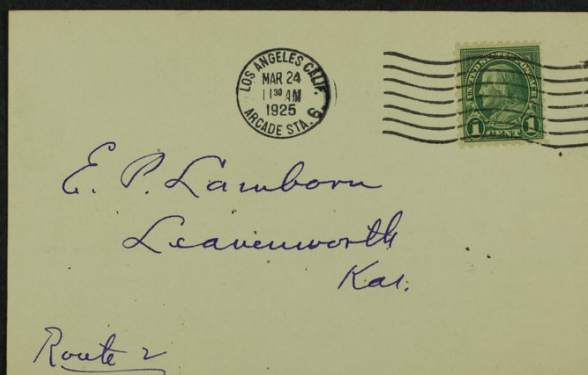 LOS ANGELES CALIF.
MAR 24
11 30 AM
1925
ARCADE STA. 6
1 1
E. P. Lamborn
Leavenworth
Kas.
Route 2